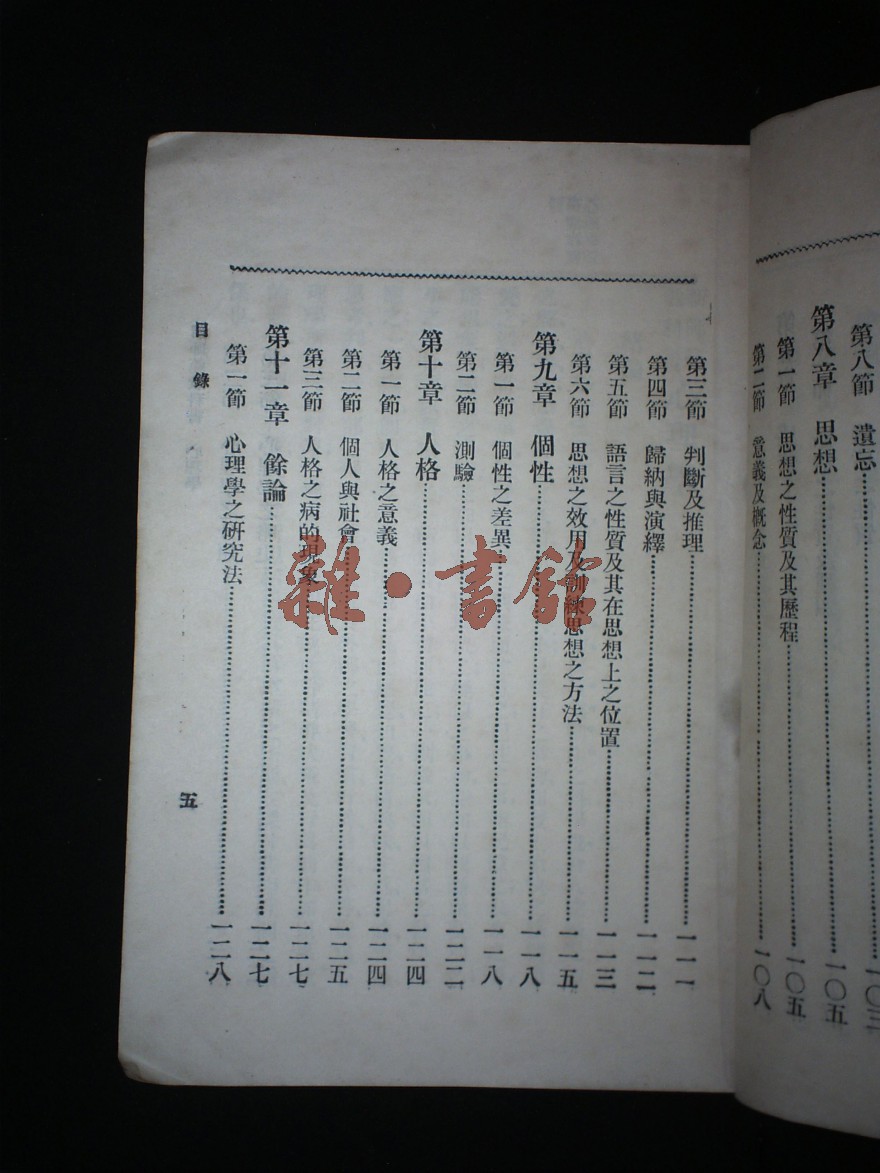 第八節　遺忘……一〇三
第八章　思想……一〇五
第一節　思想之性質及其歷程……一〇五
第二節　意義及概念……一〇八
第三節　判斷及推理……一一一
第四節　歸納與演繹……一一二
第五節　語言之性質及其在思想上之位置……一一三
第六節　思想之效用及訓練思想之方法……一一五
第九章　個性……一一八
第一節　個性之差異……一一八
第二節　測驗……一二二
第十章　人格……一二四
第一節　人格之意義……一二四
第二節　個人與社會……一二五
第三節　人格之病的現象……一二七
第十一章　餘論……一二七
第一節　心理學之研究法……一二八
目錄
五
雜·書館